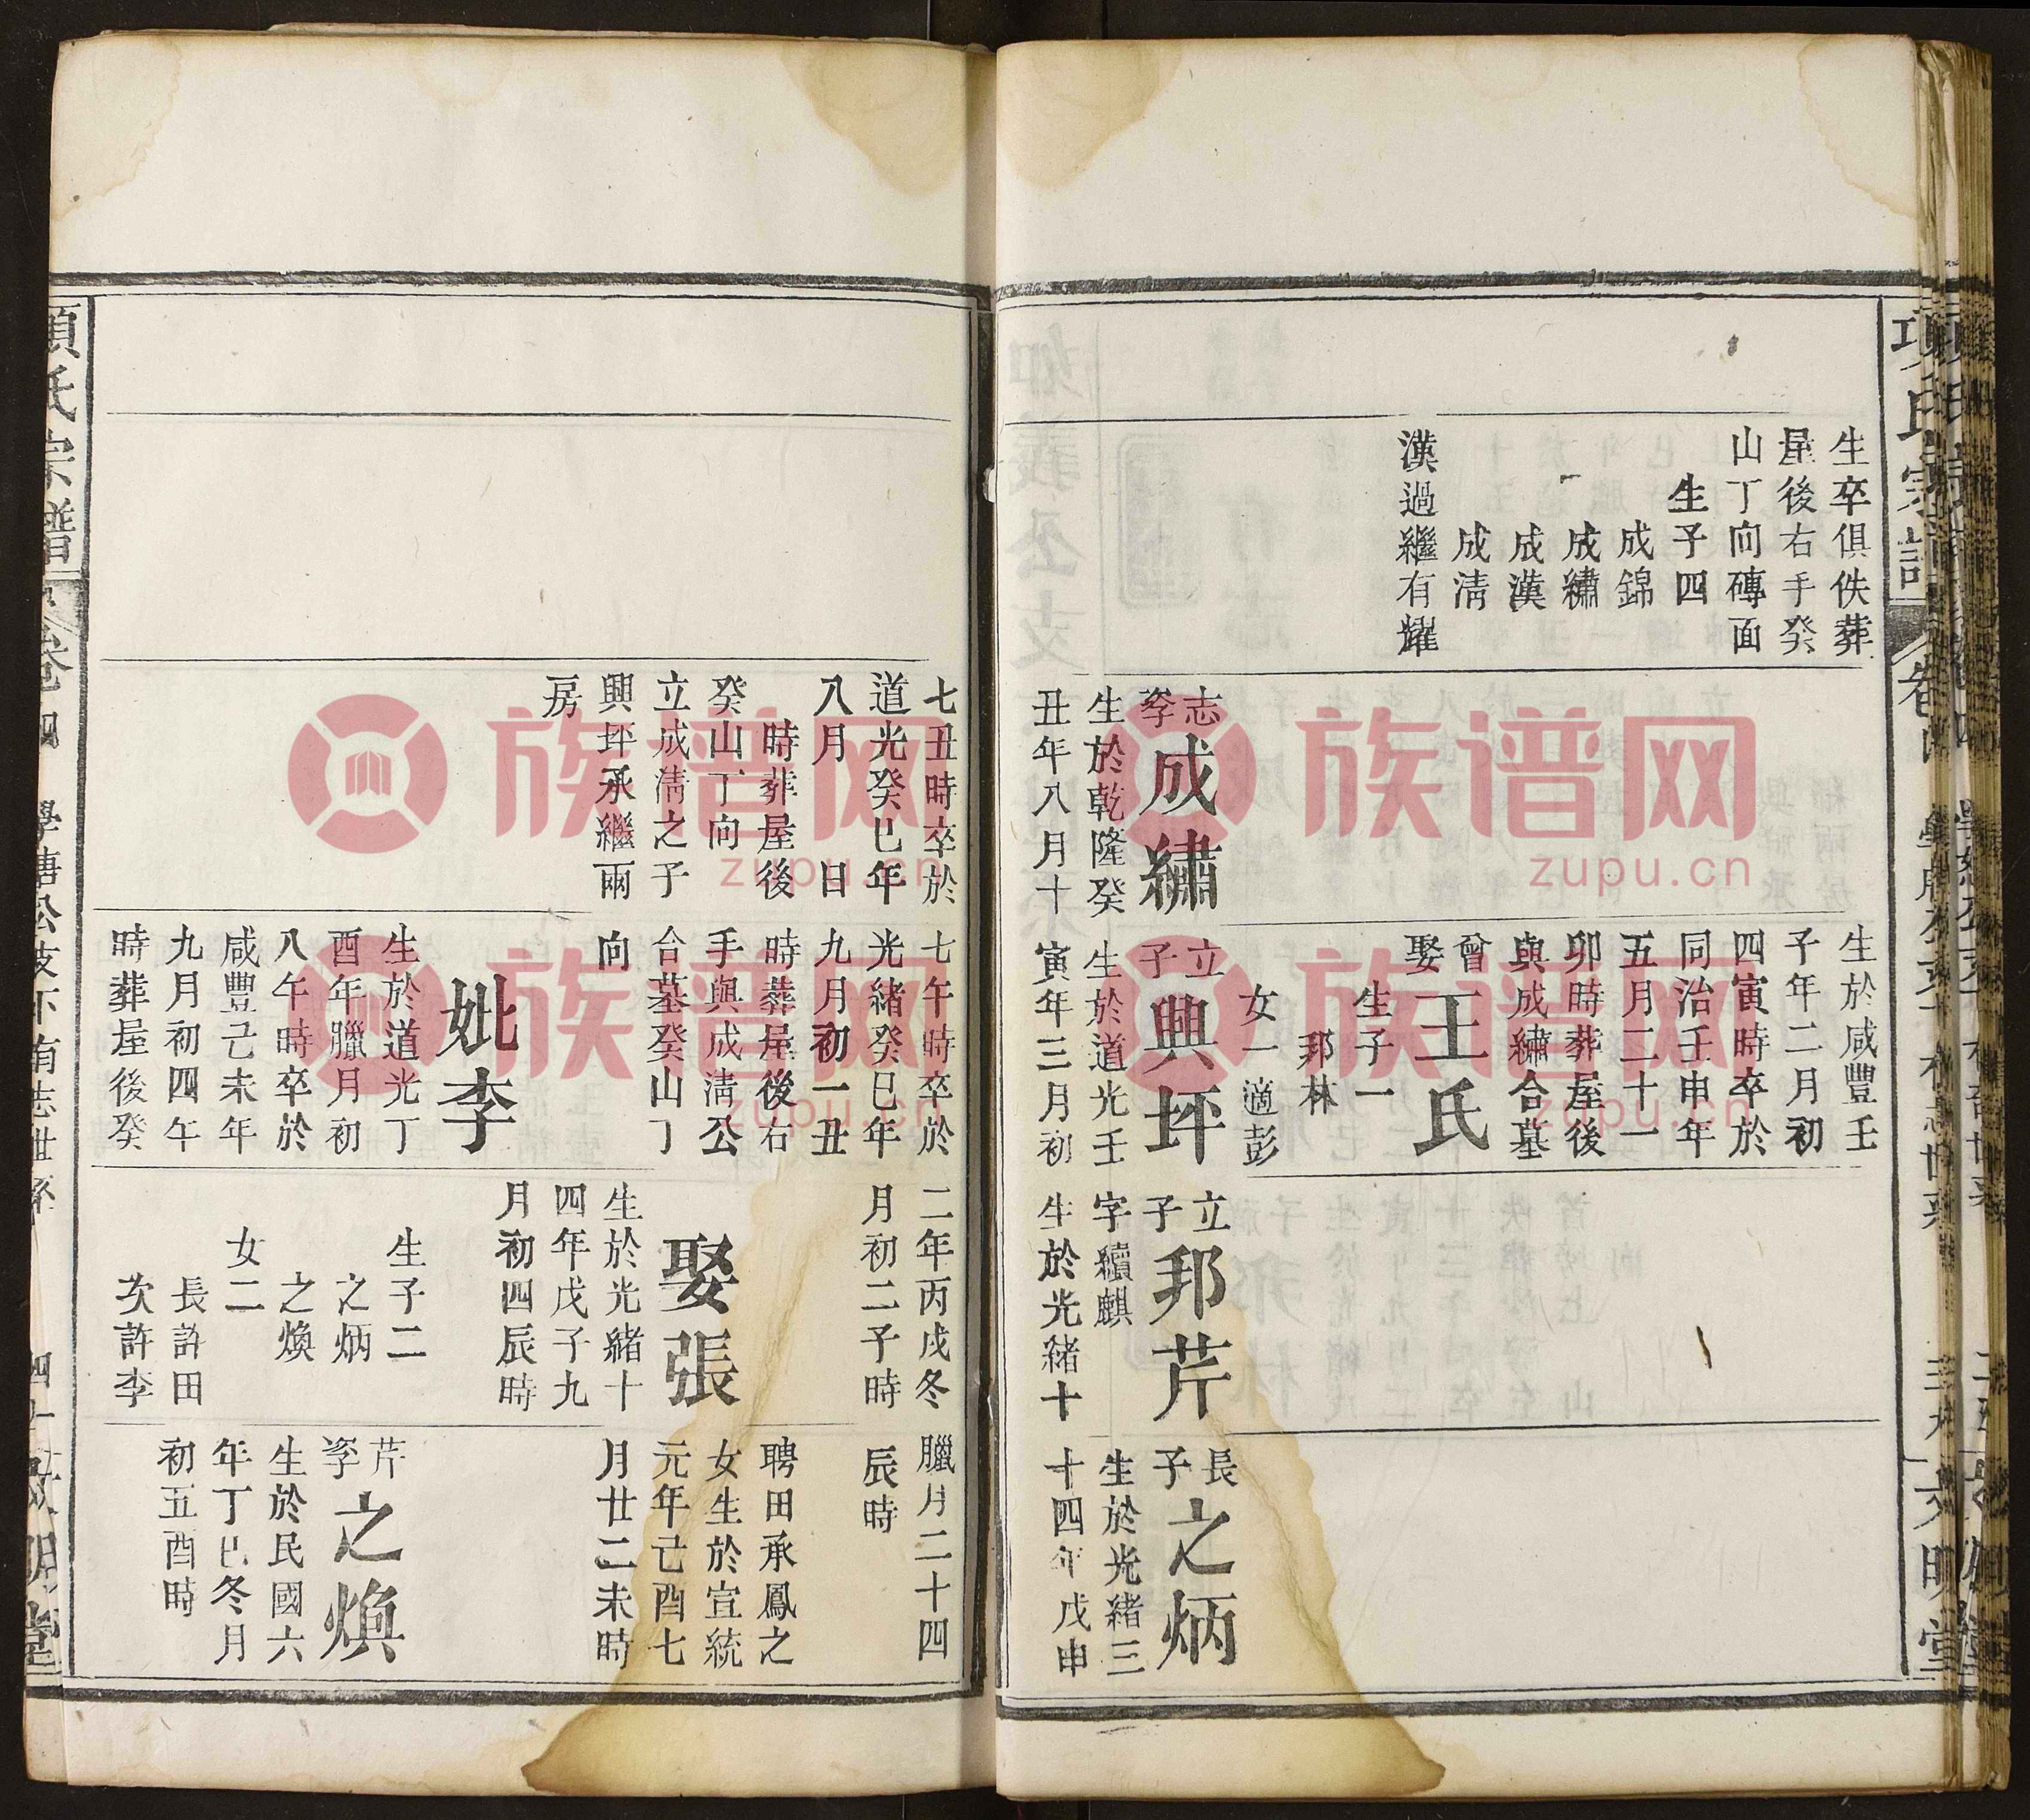 生卒俱佚葬
屋後右手癸
山丁向磚面
生子四
成錦
成繡
成漢
成淸
漢過繼有耀
志
孥
成繡
生於乾隆癸
丑年八月十
生於咸豐壬
子年二月初
四寅時卒於
同治壬申年
五月二十一
卯時葬屋後
與成繡合墓
曾
娶
王氏
生子一
邦林
女一適彭
立
子
興坪
生於道光壬
寅年三月初
立
子
邦芹
字續麒
生於光緒十
長
子
之炳
生於光緒三
十四年戊申
七丑時卒於
道光癸巳年
八月 日
時葬屋後
癸山丁向
立成淸之子
興坪承繼兩
房
七午時卒於
光緒癸巳年
九月初一丑
時葬屋後右
手與成淸公
合墓癸山丁
向
妣李
生於道光丁
酉年臘月初
八午時卒於
咸豐己未年
九月初四午
時葬屋後癸
二年丙戌冬
月初二子時
娶張
生於光緒十
四年戊子九
月初四辰時
生子二
之炳
之煥
女二
長許田
次許李
臘月二十四
辰時
聘田承鳳之
女生於宣統
元年己酉七
月廿二未時
芹
孥
之煥
生於民國六
年丁巳冬月
初五酉時
項氏宗譜
卷四
學唐公支下有志世系
文明堂
族谱网
zupu.cn
族谱网
zupu.cn
族谱网
zupu.cn
族谱网
zupu.cn